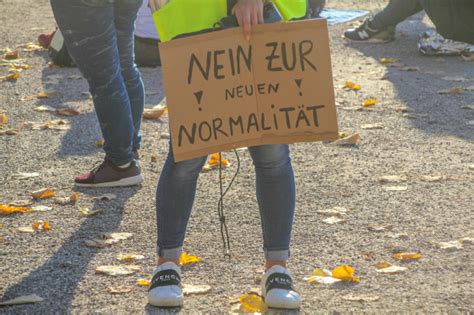 NEIN ZUR
! NEUEN !
NORMALITÄT